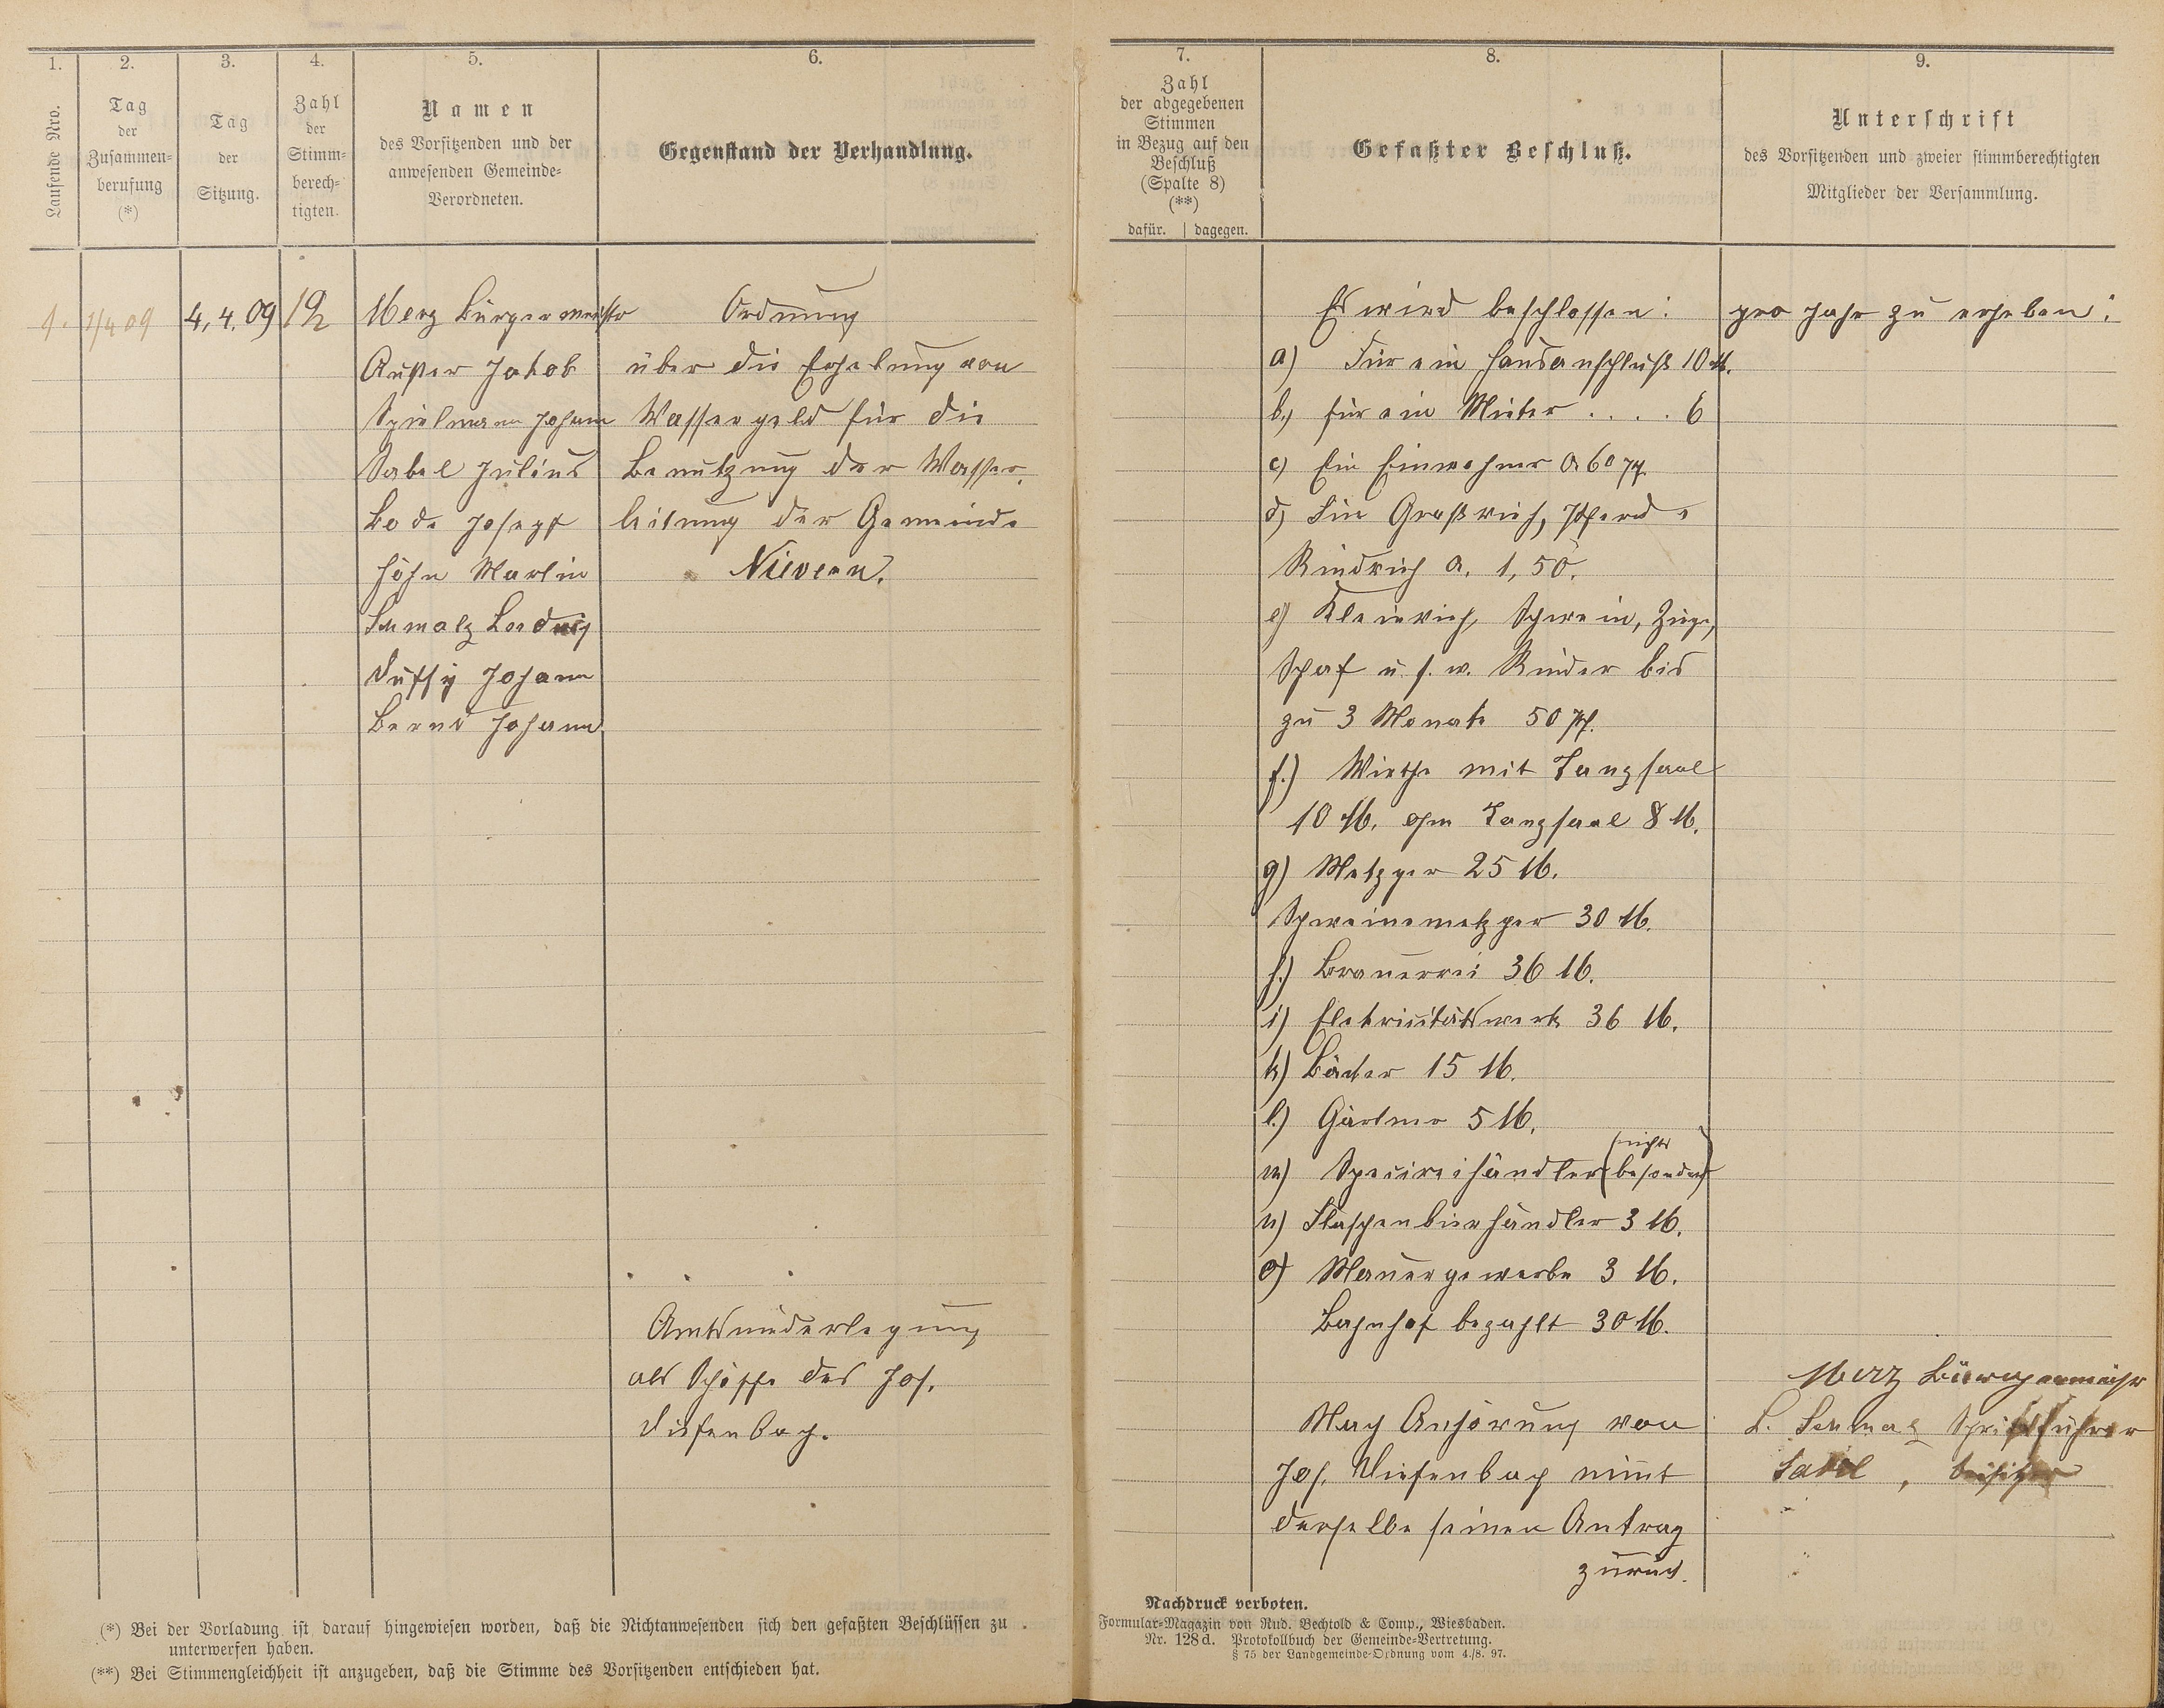 1.
Laufende Nro.
2.
Tag
der
Zusammen-
berufung
(*)
3.
Tag
der
Sitzung.
4.
Zahl
der
Stimm-
berech-
tigten.
5.
Namen
des Vorsitzenden und der
anwesenden Gemeinde-
Verordneten.
6.
Gegenstand der Verhandlung.
1. 1/4 09 4.4.09 12
Merz Bürgermeister
Auster Jakob
Spielmann Johann
Sabel Julius
Bode Joseph
Höhn Martin
Schmalz Ludwig
Dussy Johann
Bernd Johann
Ordnung
über die Erhebung von
Wassergeld für die
Benutzung der Wasser-
leitung der Gemeinde
Nievern.
Amtsniederlegung
als Schöffe des Jos.
Diefenbach.
(*) Bei der Vorladung ist darauf hingewiesen worden, daß die Nichtanwesenden sich den gefaßten Beschlüssen zu
unterwerfen haben.
(**) Bei Stimmengleichheit ist anzugeben, daß die Stimme des Vorsitzenden entschieden hat.
7.
Zahl
der abgegebenen
Stimmen
in Bezug auf den
Beschluß
(Spalte 8)
(**)
dafür. | dagegen.
8.
Gefaßter Beschluß.
9.
Unterschrift
des Vorsitzenden und zweier stimmberechtigten
Mitglieder der Versammlung.
Es wird beschlossen: pro Jahr zu erheben:
a) Für ein Hausanschluß 10 M.
b.) für ein Mieter . . . . 6
c) Ein Einwohner a 60 Pf.
d) Ein Großvieh, Pferde
Rindvieh a. 1,50.
e) Kleinvieh, Schwein, Ziege,
Schaf u. s. w. Rinder bis
zu 3 Monate 50 Pf.
f.) Wirthe mit Tanzsaal
10 M. ohne Tanzsaal 8 M.
g) Metzger 25 M.
Schweinemetzger 30 M.
h.) Brauerrei 36 M.
i) Elektricitätswerk 36 M.
k) Bäcker 15 M.
l.) Gärtner 5 M.
m) Specireihändler (nichts
besonders)
n) Flaschenbierhändler 3 M.
o) Mauergewerbe 3 M.
Bahnhof bezahlt 30 M.
Nach Anhörung von
Jos. Diefenbach nimt
derselbe seinen Antrag
zurück.
Merz Bürgermeister
L. Schmalz Schriftführer
Sabel, Beisitzer
Nachdruck verboten.
Formular-Magazin von Rud. Bechtold & Comp., Wiesbaden.
Nr. 128d. Protokollbuch der Gemeinde-Vertretung.
§ 75 der Landgemeinde-Ordnung vom 4./8. 97.